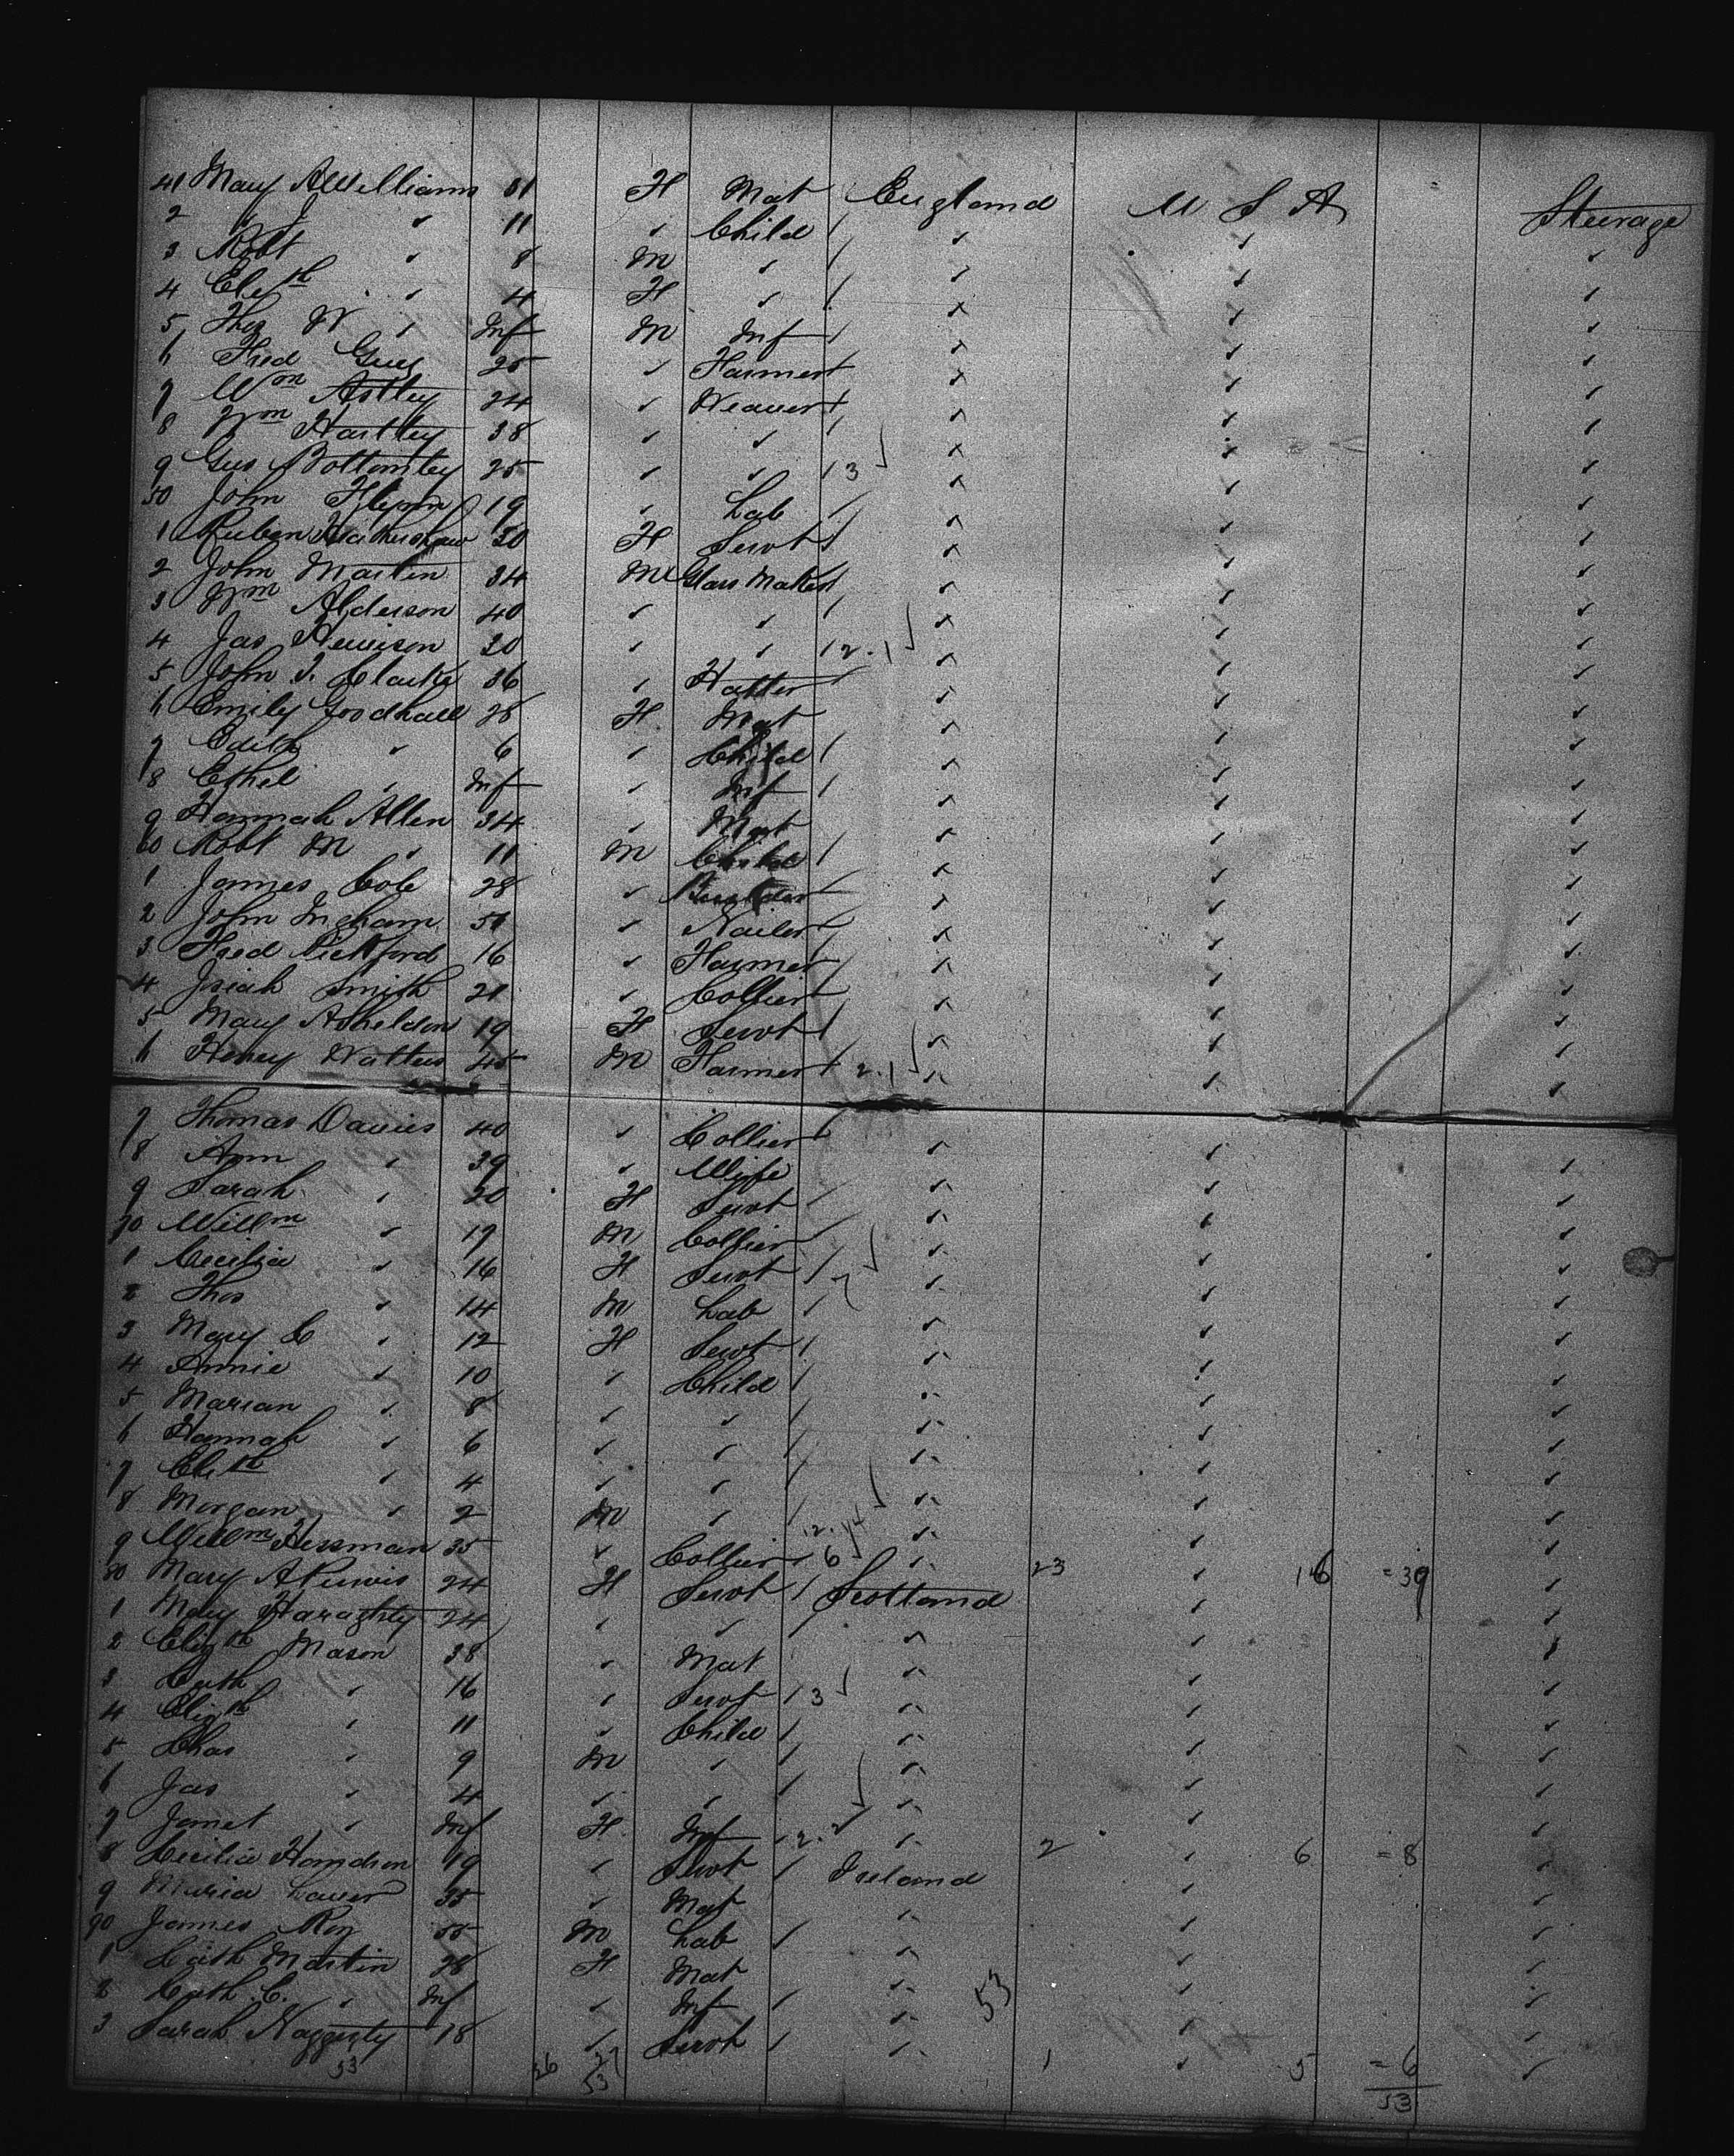 41 Mary A Williams 31 F Mat England U S A Steerage
2 " " 11 " Child
3 Robt " 8 M "
4 Elizth " 4 F "
5 Thos W " Inf M Inf
6 Fred Guy 25 " Farmer
7 Wm Astley 24 " Weaver
8 Wm Hartley 38 " "
9 Geo Bottomley 25 " " 3
50 John Flynn 19 " Lab
1 Ruben 20 F Servt
2 John Martin 34 M Glass Maker
3 Wm Alderson 40 " "
4 Jas Hewison 30 " " 2.1
5 John T. Clarke 36 " Hatter
6 Emily Goodhall 28 F Mat
7 Edith " 6 " Child
8 Ethel " Inf " Inf
9 Hannah Allen 34 " Mat
60 Robt M " 11 M Child
1 James Cole 28 "
2 John Ingham 51 " Nailer
3 Fred Pickford 16 " Farmer
4 Josiah Smith 21 " Collier
5 Mary A Sheldon 19 F Servt
6 Henry Watters 45 M Farmer 2.1
7 Thomas Davies 40 " Collier
8 Ann " 39 " Wife
9 Sarah " 20 F Servt
70 Willm " 19 M Collier
1 Cecilia " 16 F Servt
2 Thos " 14 M Lab
3 Mary C " 12 F Servt
4 Annie " 10 " Child
5 Marian " 8 " "
6 Hannah " 6 " "
7 Elizth " 4 " "
8 Morgan " 2 M "
9 Willm 35 " Collier 6 " 23 " 16 = 39
80 Mary A Purvis 24 F Servt Scotland
1 Mary Haraghty 24 " "
2 Elizth Mason 38 " Mat
3 Cath " 16 " Servt 3
4 Elizth " 11 " Child
5 Chas " 9 M "
6 Jas " 4 " "
7 Janet " Inf F Inf 2.2 " 2 " 6 = 8
8 Cecilia 19 " Servt Ireland
9 Maria 35 " Mat
90 James Roy 55 M Lab
1 Cath Martin 28 F Mat
2 Cath C. " Inf " Inf 53
3 Sarah Haggerty 18 " Servt " 1 " 5 = 6
53 26 27 53 53